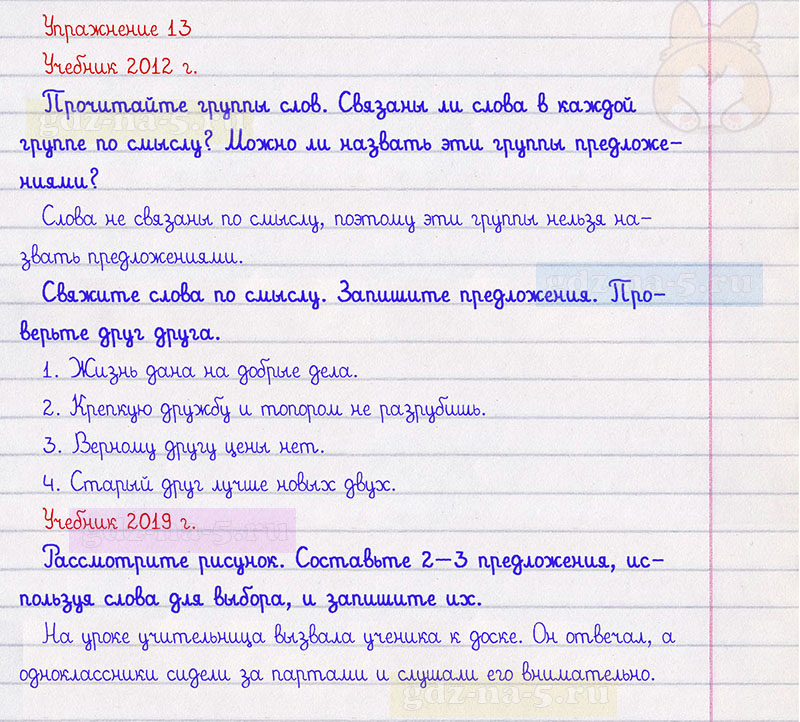 Упражнение 13
Учебник 2012 г.
Прочитайте группы слов. Связаны ли слова в каждой
gdz-na-5.ru
группе по смыслу? Можно ли назвать эти группы предложе-
ниями?
Слова не связаны по смыслу, поэтому эти группы нельзя на-
звать предложениями.
gdz-na-5.ru
Свяжите слова по смыслу. Запишите предложения. Про-
верьте друг друга.
1. Жизнь дана на добрые дела.
2. Крепкую дружбу и топором не разрубишь.
3. Верному другу цены нет.
4. Старый друг лучше новых двух.
Учебник 2019 г.
gdz-na-5.ru
Рассмотрите рисунок. Составьте 2–3 предложения, ис-
пользуя слова для выбора, и запишите их.
На уроке учительница вызвала ученика к доске. Он отвечал, а
одноклассники сидели за партами и слушали его внимательно.
gdz-na-5.ru